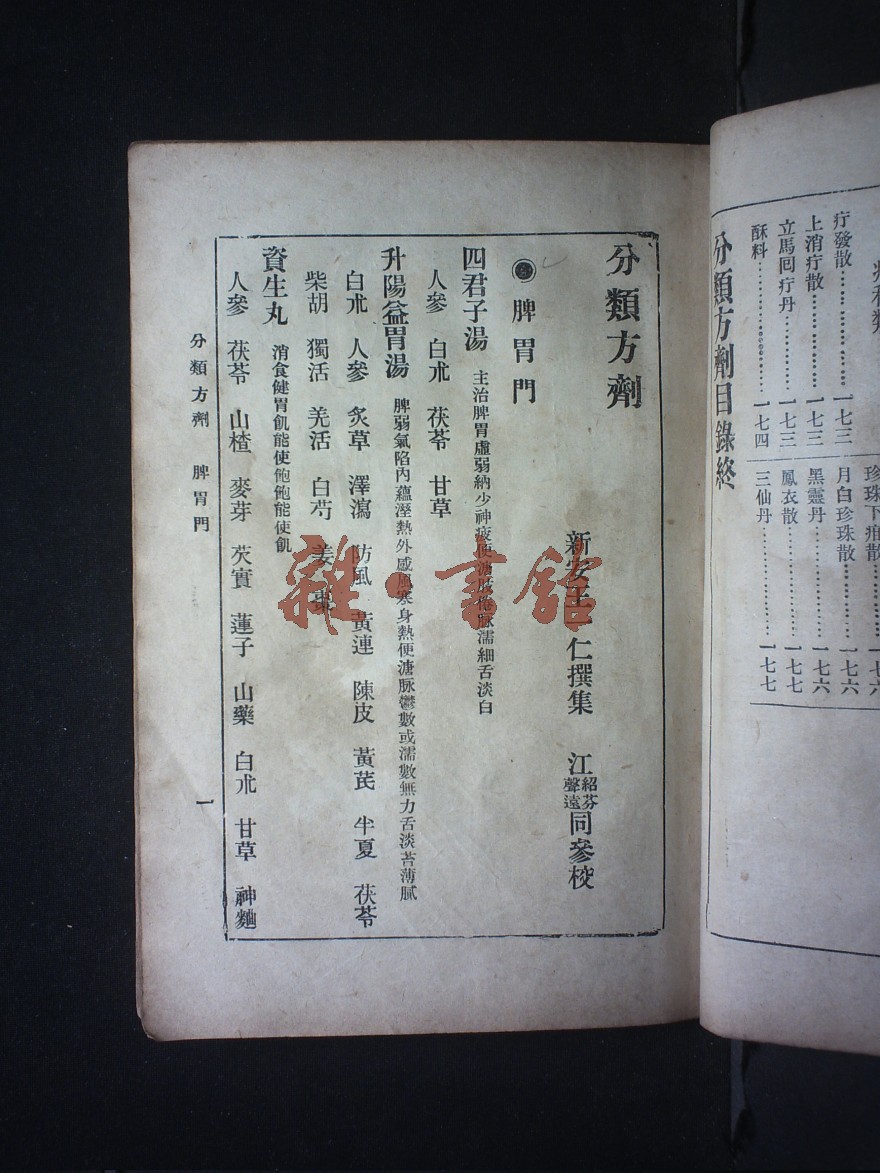 疔發散……………一七三
上消疔散…………一七三
立馬囘疔丹………一七三
酥料………………一七四
珍珠下疳散………一七六
月白珍珠散………一七六
黑靈丹……………一七六
鳳衣散……………一七七
三仙丹……………一七七
分類方劑目錄終
分類方劑
新安王一仁撰集 江紹芬聲遠同參校
脾胃門
四君子湯 主治脾胃虛弱納少神疲便溏肢倦脈濡細舌淡白
人參 白朮 茯苓 甘草
升陽益胃湯 脾弱氣陷內蘊溼熱外感風寒身熱便溏脉鬱數或濡數無力舌淡苔薄膩
白朮 人參 炙草 澤瀉 防風 黃連 陳皮 黃芪 半夏 茯苓
柴胡 獨活 羌活 白芍 姜 棗
資生丸 消食健胃飢能使飽飽能使飢
人參 茯苓 山楂 麥芽 芡實 蓮子 山藥 白朮 甘草 神麯
分類方劑 脾胃門 一
雜·書館